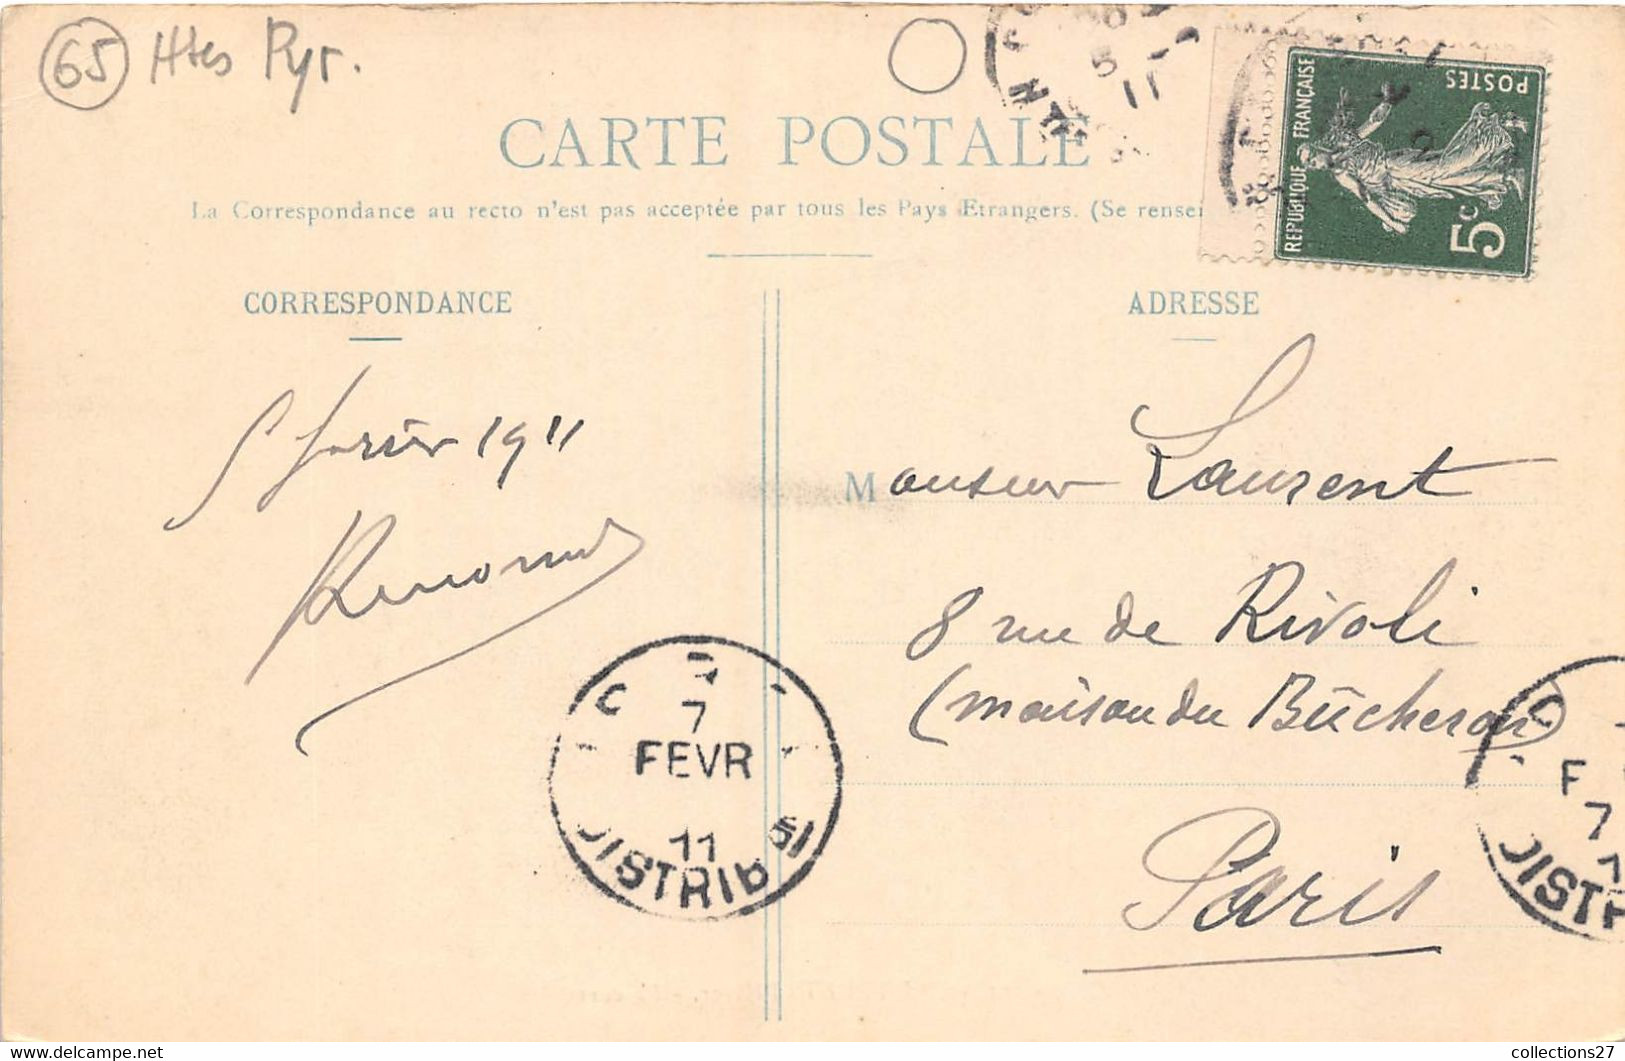 65 Htes Pyr.
CARTE POSTALE
La Correspondance au recto n'est pas acceptée par tous les Pays Etrangers. (Se rensei
REPUBLIQUE FRANÇAISE
POSTES
5c
5
11
CORRESPONDANCE
ADRESSE
5 février 1911
Monsieur Laurent
8 rue de Rivoli
(maison du Bûcheron)
Paris
7
FEVR
11
DISTRIB 51
F
7
DISTR
collections27